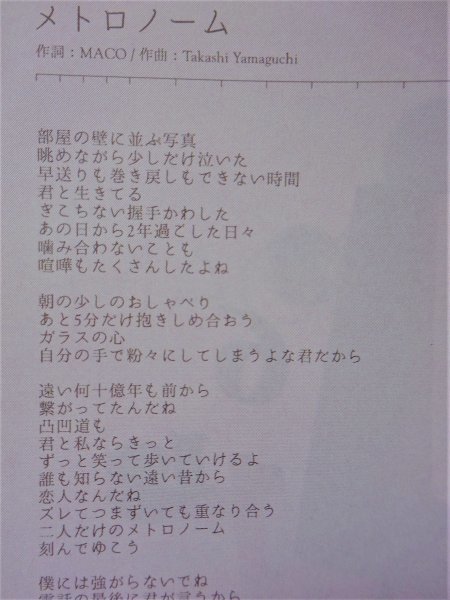 メトロノーム
作詞：MACO / 作曲：Takashi Yamaguchi
部屋の壁に並ぶ写真
眺めながら少しだけ泣いた
早送りも巻き戻しもできない時間
君と生きてる
ぎこちない握手かわした
あの日から2年過ごした日々
噛み合わないことも
喧嘩もたくさんしたよね
朝の少しのおしゃべり
あと5分だけ抱きしめ合おう
ガラスの心
自分の手で粉々にしてしまうよな君だから
遠い何十億年も前から
繋がってたんだね
凸凹道も
君と私ならきっと
ずっと笑って歩いていけるよ
誰も知らない遠い昔から
恋人なんだね
ズレてつまずいても重なり合う
二人だけのメトロノーム
刻んでゆこう
僕には強がらないでね
電話の最後に君が言うから